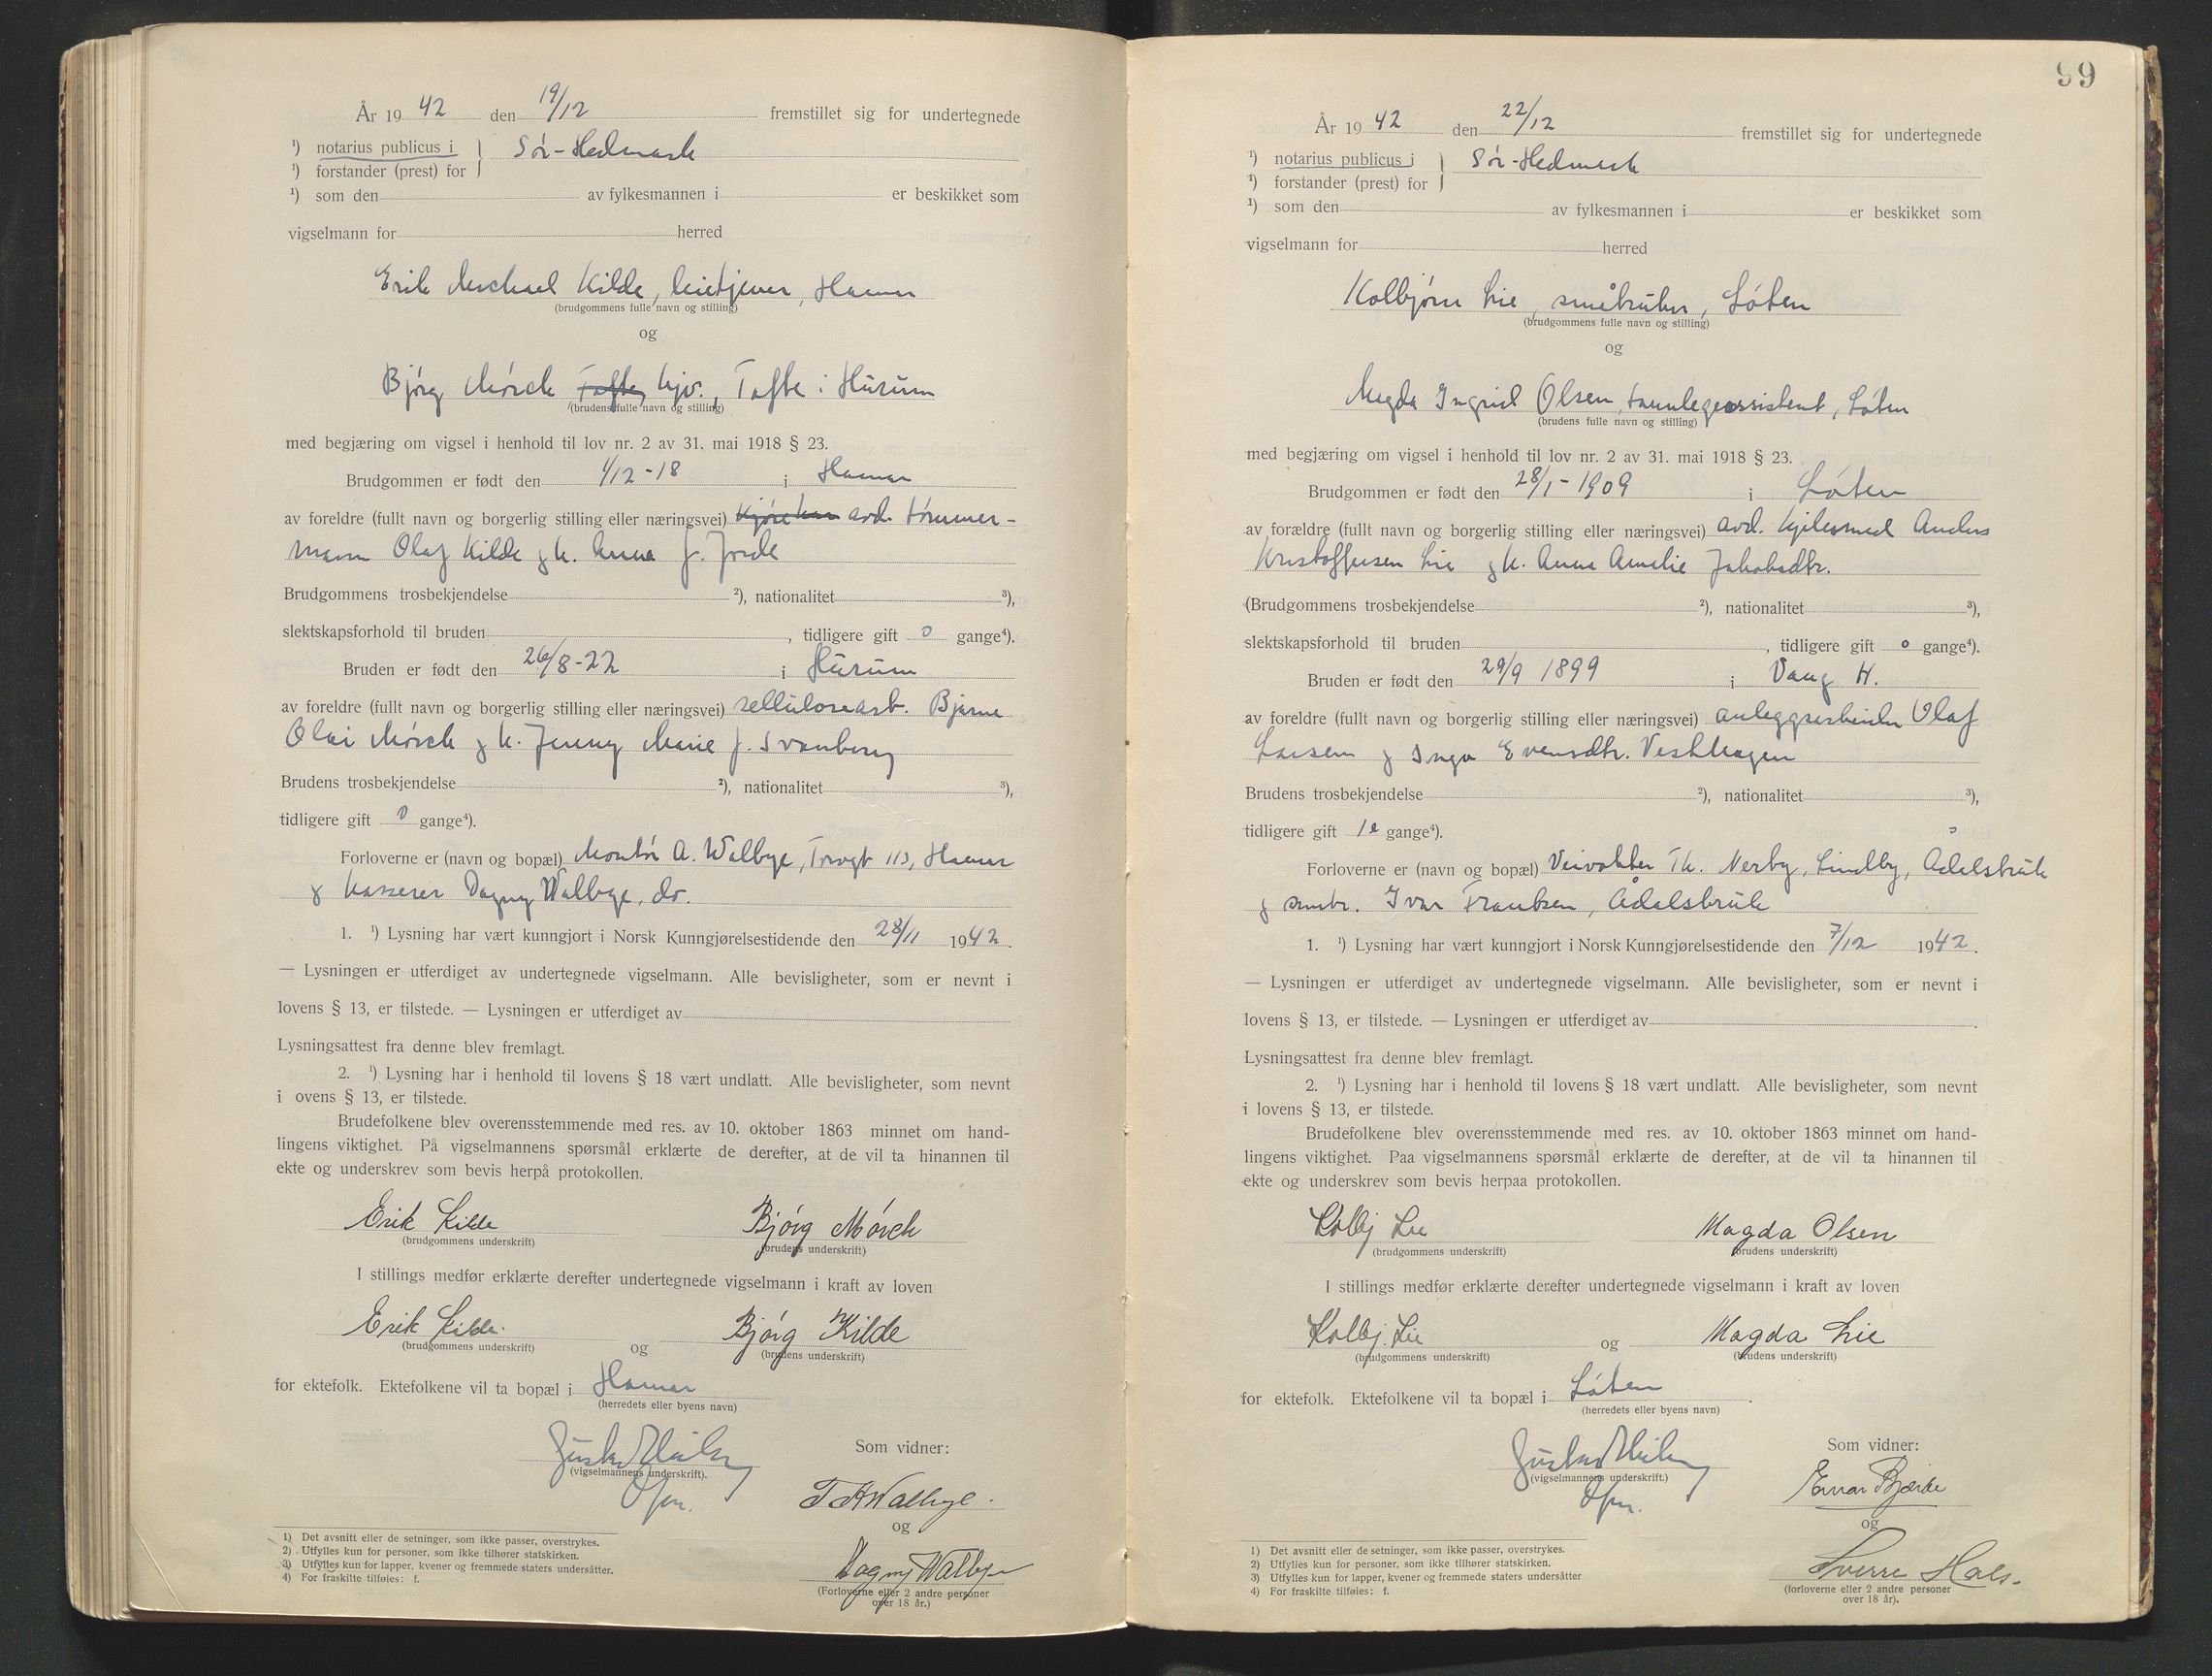 År 19 42 den 19/12 fremstillet sig for undertegnede
¹) notarius publicus i } Sør-Hedmark
¹) forstander (prest) for
¹) som den av fylkesmannen i er beskikket som
vigselmann for herred
Erik Michael Kilde, Hamar
(brudgommens fulle navn og stilling)
og
Bjørg Mörch Tofte hjv., Tofte i Hurum
(brudens fulle navn og stilling)
med begjæring om vigsel i henhold til lov nr. 2 av 31. mai 1918 § 23.
Brudgommen er født den 1/12-18 i Hamar
av foreldre (fullt navn og borgerlig stilling eller næringsvei) avd. tømmer-
mann Olaf Kilde og h. Anna f. Jorde
Brudgommens trosbekjendelse ²), nationalitet ³),
slektskapsforhold til bruden , tidligere gift 0 gange⁴).
Bruden er født den 26/8-22 i Hurum
av foreldre (fullt navn og borgerlig stilling eller næringsvei) cellulosearb. Bjarne
Olai Mörch og h. Jenny Marie f. Svanberg
Brudens trosbekjendelse ²), nationalitet ³),
tidligere gift 0 gange⁴).
Forloverne er (navn og bopæl) Montør A. Walbye, Torvgt 113, Hamar
og kasserer Dagny Walbye, do.
1. ¹) Lysning har vært kunngjort i Norsk Kunngjørelsestidende den 28/11 1942.
— Lysningen er utferdiget av undertegnede vigselmann. Alle bevisligheter, som er nevnt i
lovens § 13, er tilstede. — Lysningen er utferdiget av
Lysningsattest fra denne blev fremlagt.
2. ¹) Lysning har i henhold til lovens § 18 vært undlatt. Alle bevisligheter, som nevnt
i ovens § 13, er tilstede.
Brudefolkene blev overensstemmende med res. av 10. oktober 1863 minnet om hand-
lingens viktighet. På vigselmannens spørsmål erklærte de derefter, at de vil ta hinannen til
ekte og underskrev som bevis herpå protokollen.
Erik Kilde Bjørg Mörch
(brudgommens underskrift) (brudens underskrift)
I stillings medfør erklærte derefter undertegnede vigselmann i kraft av loven
Erik Kilde. Bjørg Kilde
(brudgommens underskrift) og (brudens underskrift)
for ektefolk. Ektefolkene vil ta bopæl i Hamar
(herredets eller byens navn)
Som vidner:
(vigselmannens underskrift).
Walbye.
og
Dagny Walbye
(Forloverne eller 2 andre personer
over 18 år.)
1) Det avsnitt eller de setninger, som ikke passer, overstrykes.
2) Utfylles kun for personer, som ikke tilhører statskirken.
3) Utfylles kun for lapper, kvener og fremmede staters undersåtter.
4) For fraskilte tilføies: f.
99
År 19 42 den 22/12 fremstillet sig for undertegnede
¹) notarius publicus i } Sør-Hedmark
¹) forstander (prest) for
¹) som den av fylkesmannen i er beskikket som
vigselmann for herred
Kolbjørn Lie, småbruker, Løten
(brudgommens fulle navn og stilling)
og
Magda Ingrid Olsen, tannlegeassistent, Løten
(brudens fulle navn og stilling)
med begjæring om vigsel i henhold til lov nr. 2 av 31. mai 1918 § 23.
Brudgommen er født den 28/1-1909 i Løten
av forældre (fullt navn og borgerlig stilling eller næringsvei) avd. Anders
Kristoffersen Lie og h. Anne Amelie Jakobsdtr.
(Brudgommens trosbekjendelse ²), nationalitet ³),
slektskapsforhold til bruden , tidligere gift 0 gange⁴).
Bruden er født den 29/9 1899 i Vang H.
av foreldre (fullt navn og borgerlig stilling eller næringsvei) anleggsarbeider Olaf
Larsen og Inga Evensdtr. Vesthagen
Brudens trosbekjendelse ²), nationalitet ³),
tidligere gift gange⁴).
Forloverne er (navn og bopæl) Veivokter Th. Nerby, Lindby, Ådalsbruk
og småbr. Ivar Frantzen, Ådalsbruk
1. ¹) Lysning har vært kunngjort i Norsk Kunngjørelsestidende den 7/12 1942.
— Lysningen er utferdiget av undertegnede vigselmann. Alle bevisligheter, som er nevnt i
lovens § 13, er tilstede. — Lysningen er utferdiget av .
Lysningsattest fra denne blev fremlagt.
2. ¹) Lysning har i henhold til lovens § 18 vært undlatt. Alle bevisligheter, som nevnt
i lovens § 13, er tilstede.
Brudefolkene blev overensstemmende med res. av 10. oktober 1863 minnet om hand-
lingens viktighet. Paa vigselmannens spørsmål erklærte de derefter, at de vil ta hinannen til
ekte og underskrev som bevis herpaa protokollen.
Kolbj Lie Magda Olsen
(brudgommens underskrift) (brudens underskrift)
I stillings medfør erklærte derefter undertegnede vigselmann i kraft av loven
Kolbj. Lie Magda Lie
(brudgommens underskrift) og (brudens underskrift)
for ektefolk. Ektefolkene vil ta bopæl i Løten .
(herredets eller byens navn)
Som vidner:
(vigselmannens underskrift.)
Einar Bjerke
og
Sverre Hals.
(forloverne eller 2 andre personer
over 18 år).
1) Det avsnitt eller de setninger, som ikke passer, overstrykes.
2) Utfylles kun for personer, som ikke tilhører statskirken.
3) Utfylles kun for lapper, kvener og fremmede staters undersåtter
4) For fraskilte tilføies: f.